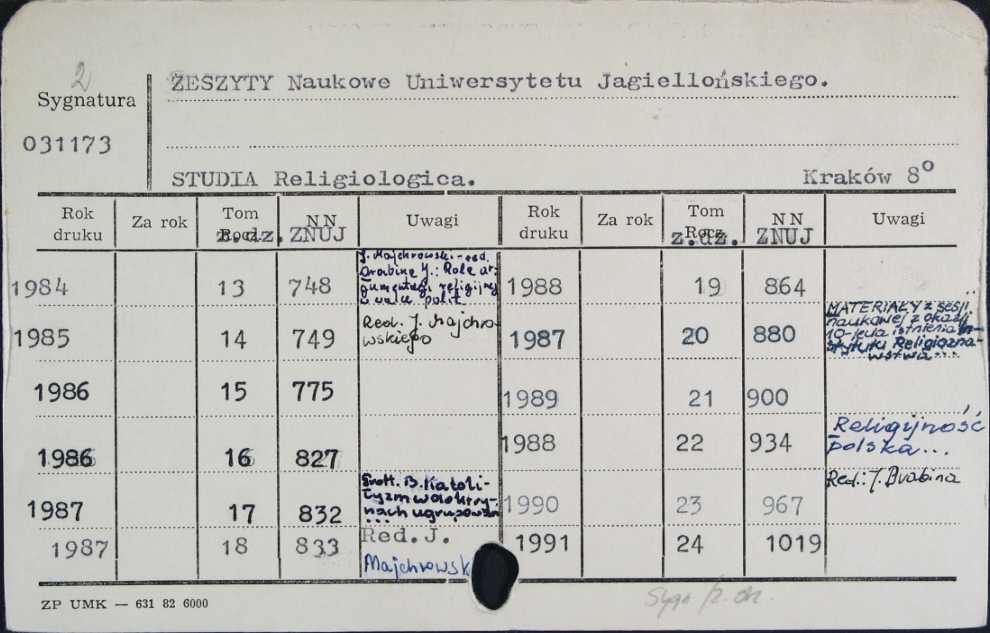 2
Sygnatura
031173
ZESZYTY Naukowe Uniwersytetu Jagiellońskiego.
STUDIA Religiologica. Kraków 8°
Rok druku Za rok Tom Rocz. z.dz. NN ZNUJ Uwagi
1984 13 748 J. Majchrowski - red.
Drabina J.: Rola ar-
gumentacji religijnej
w walce polit.
1985 14 749 Red. J. Majchro-
wskiego
1986 15 775
1986 16 827
1987 17 832 Grott. B. Katoli-
cyzm w doktry-
nach ugrupowań
...
1987 18 833 Red. J.
Majchrowsk
Rok druku Za rok Tom Rocz. z.dz. NN ZNUJ Uwagi
1988 19 864
1987 20 880 MATERIAŁY z sesji
naukowej z okazji
10-lecia istnienia In-
stytutu Religiozna-
wstwa...
1989 21 900
1988 22 934 Religijność
polska...
1990 23 967 Red.: J. Drabina
1991 24 1019
ZP UMK — 631 82 6000